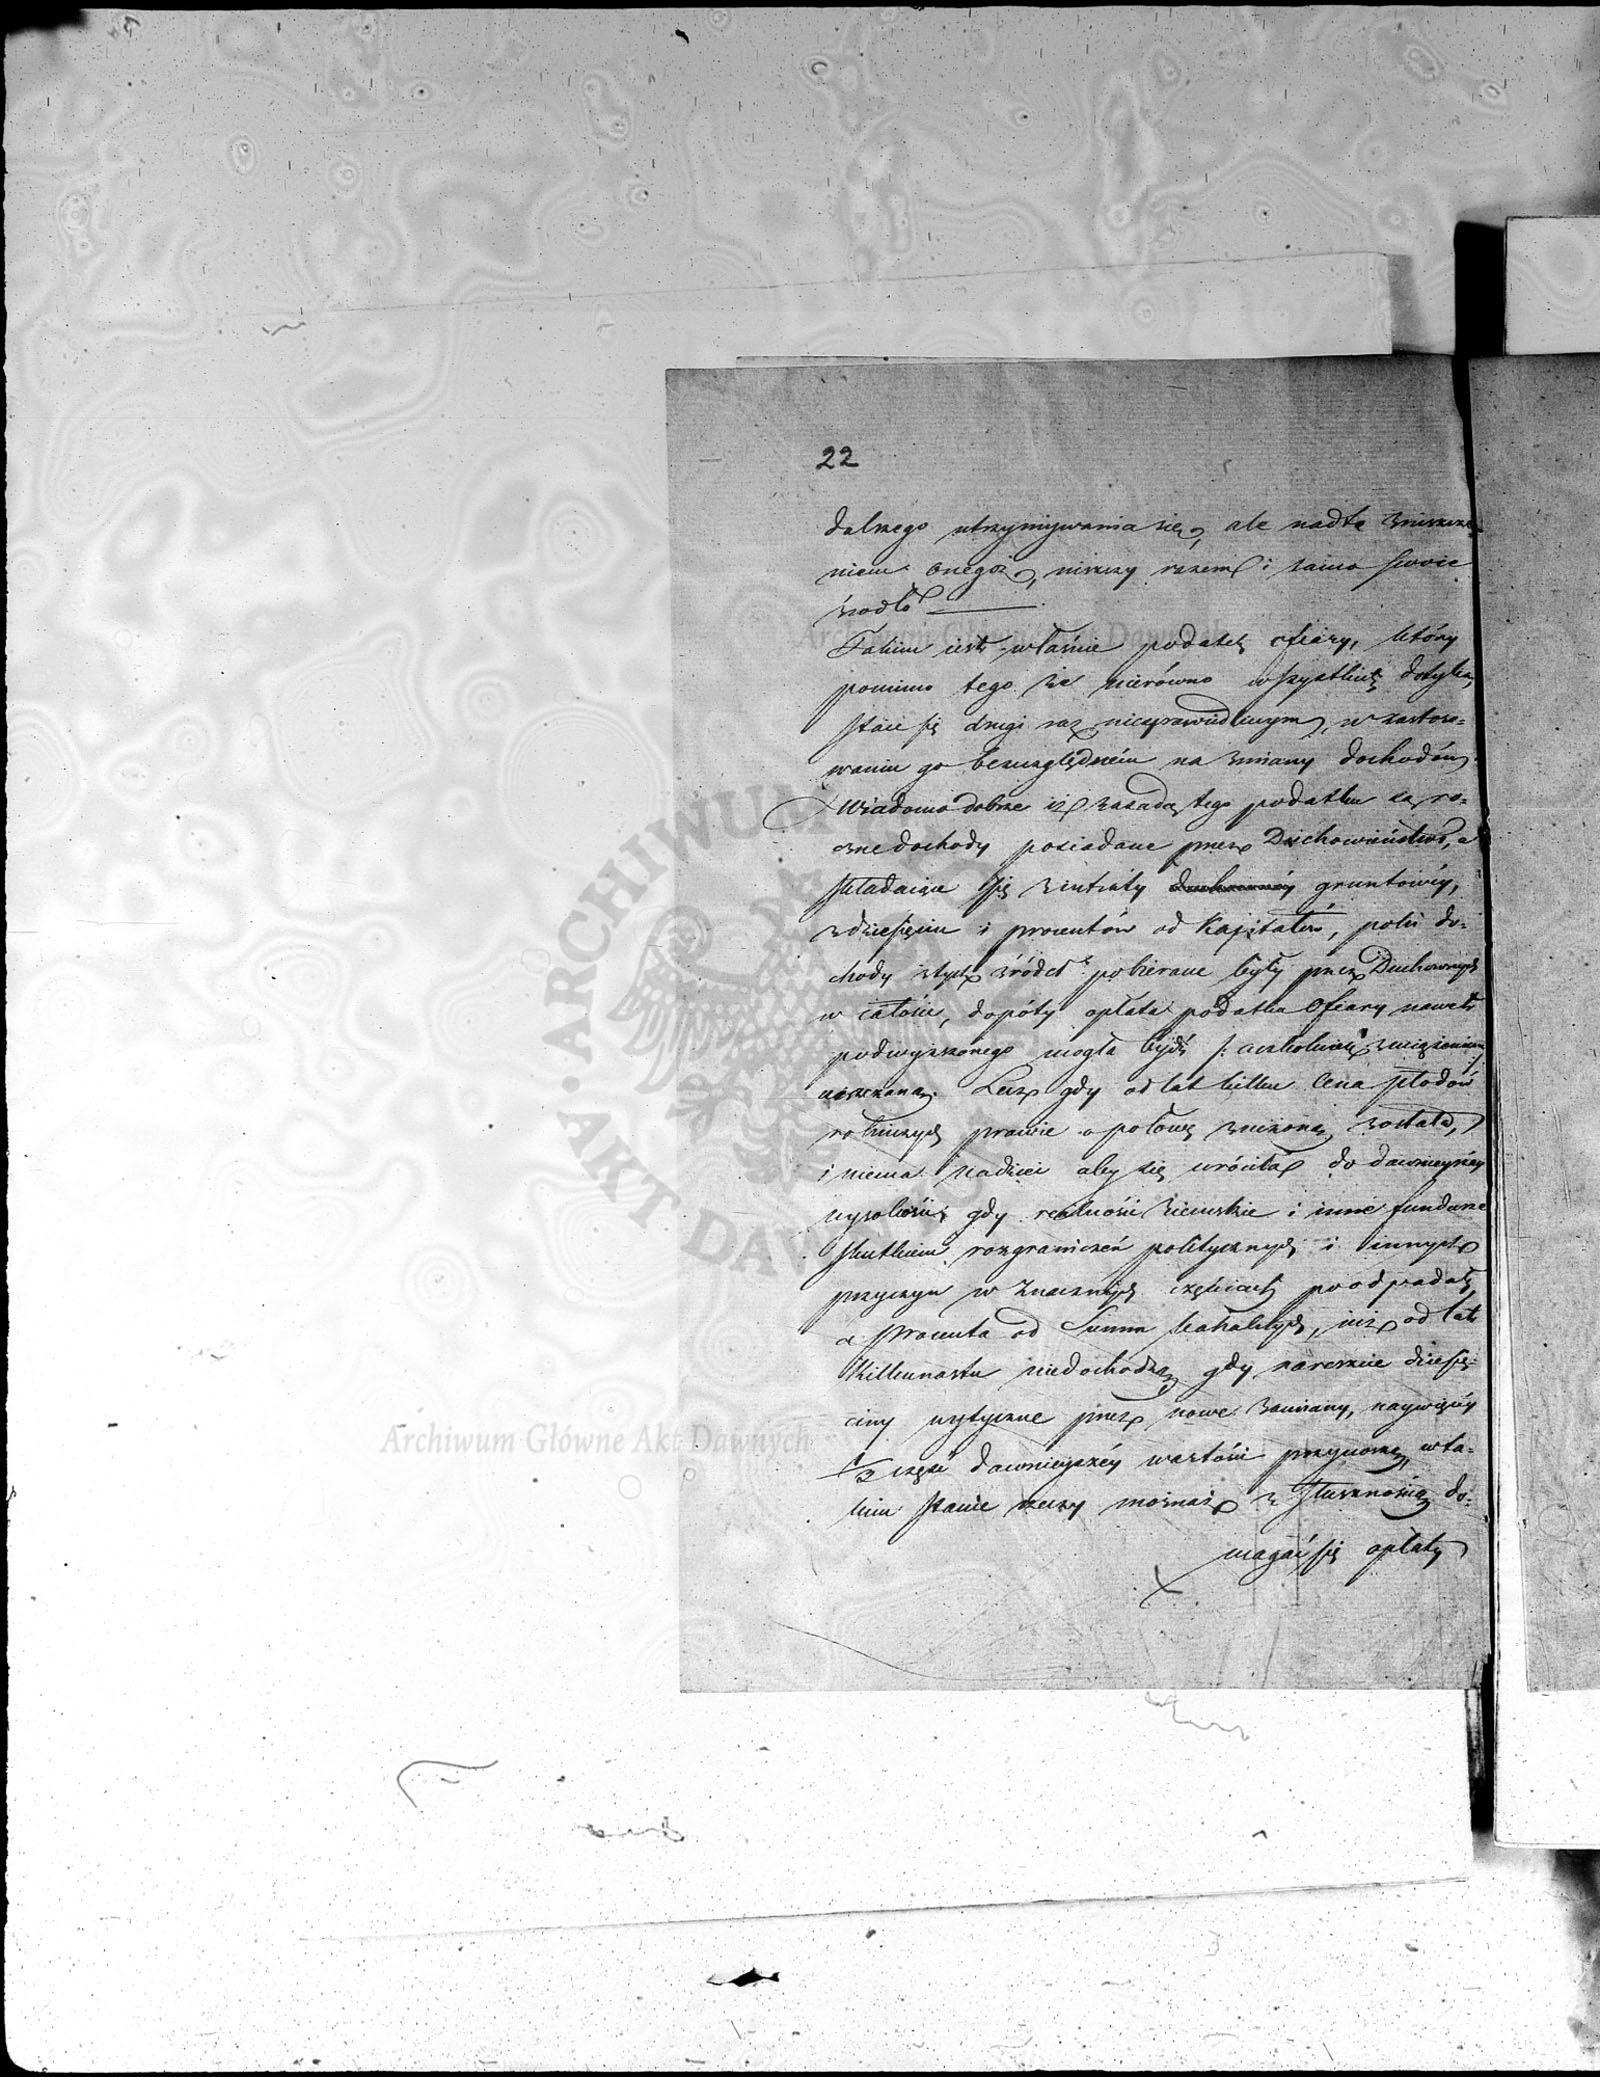 22
dalszego utrzymywania się, ale nadto zniszcze=
niem onegoż, niszczy razem i samo swoie
źrodło
Takim iest właśnie podatek ofiary, który
pomimo tego że nierówno wszystkich dotyka,
staie się drugi raz niesprawiedliwym, w zastoso=
waniu go bezwzględnem na zmiany dochodów.
Wiadomo dobrze iż zasadą tego podatku są ro=
czne dochody posiadane przez Duchowieństwo, a
składaiące się z intraty gruntowéy,
z dziesięcin i procentów od Kapitałów, poki do=
chody z tych źródeł pobierane były przez Duchownych
w całości, dopóty opłata podatku Ofiary nawet
podwyższonego mogła bydź /: aczkolwiek z uciążeniem :/
uiszczana. Lecz gdy od lat kilku Cena płodów
rolniczych prawie o połowę zniżona została,
i niema nadziei aby się wróciła do dawnieyszéy
wysokości, gdy realności ziemskie i inne fundusze
skutkiem rozgraniczeń politycznych i innych
przyczyn w znacznych częściach poodpadały
a Procenta od Summ kahalnych, już od lat
Kilkunastu niedochodzą, gdy nareszcie dziesię=
ciny wytyczne przez nowe zamiany, naywięcéy
1/3 część dawnieyszéy wartości przynoszą, w ta=
kim stanie rzeczy możnaż z słusznością do=
magać się opłaty
Archiwum Główne Akt Dawnych
Archiwum Główne Akt Dawnych
ARCHIWUM
AKT DAWNYCH